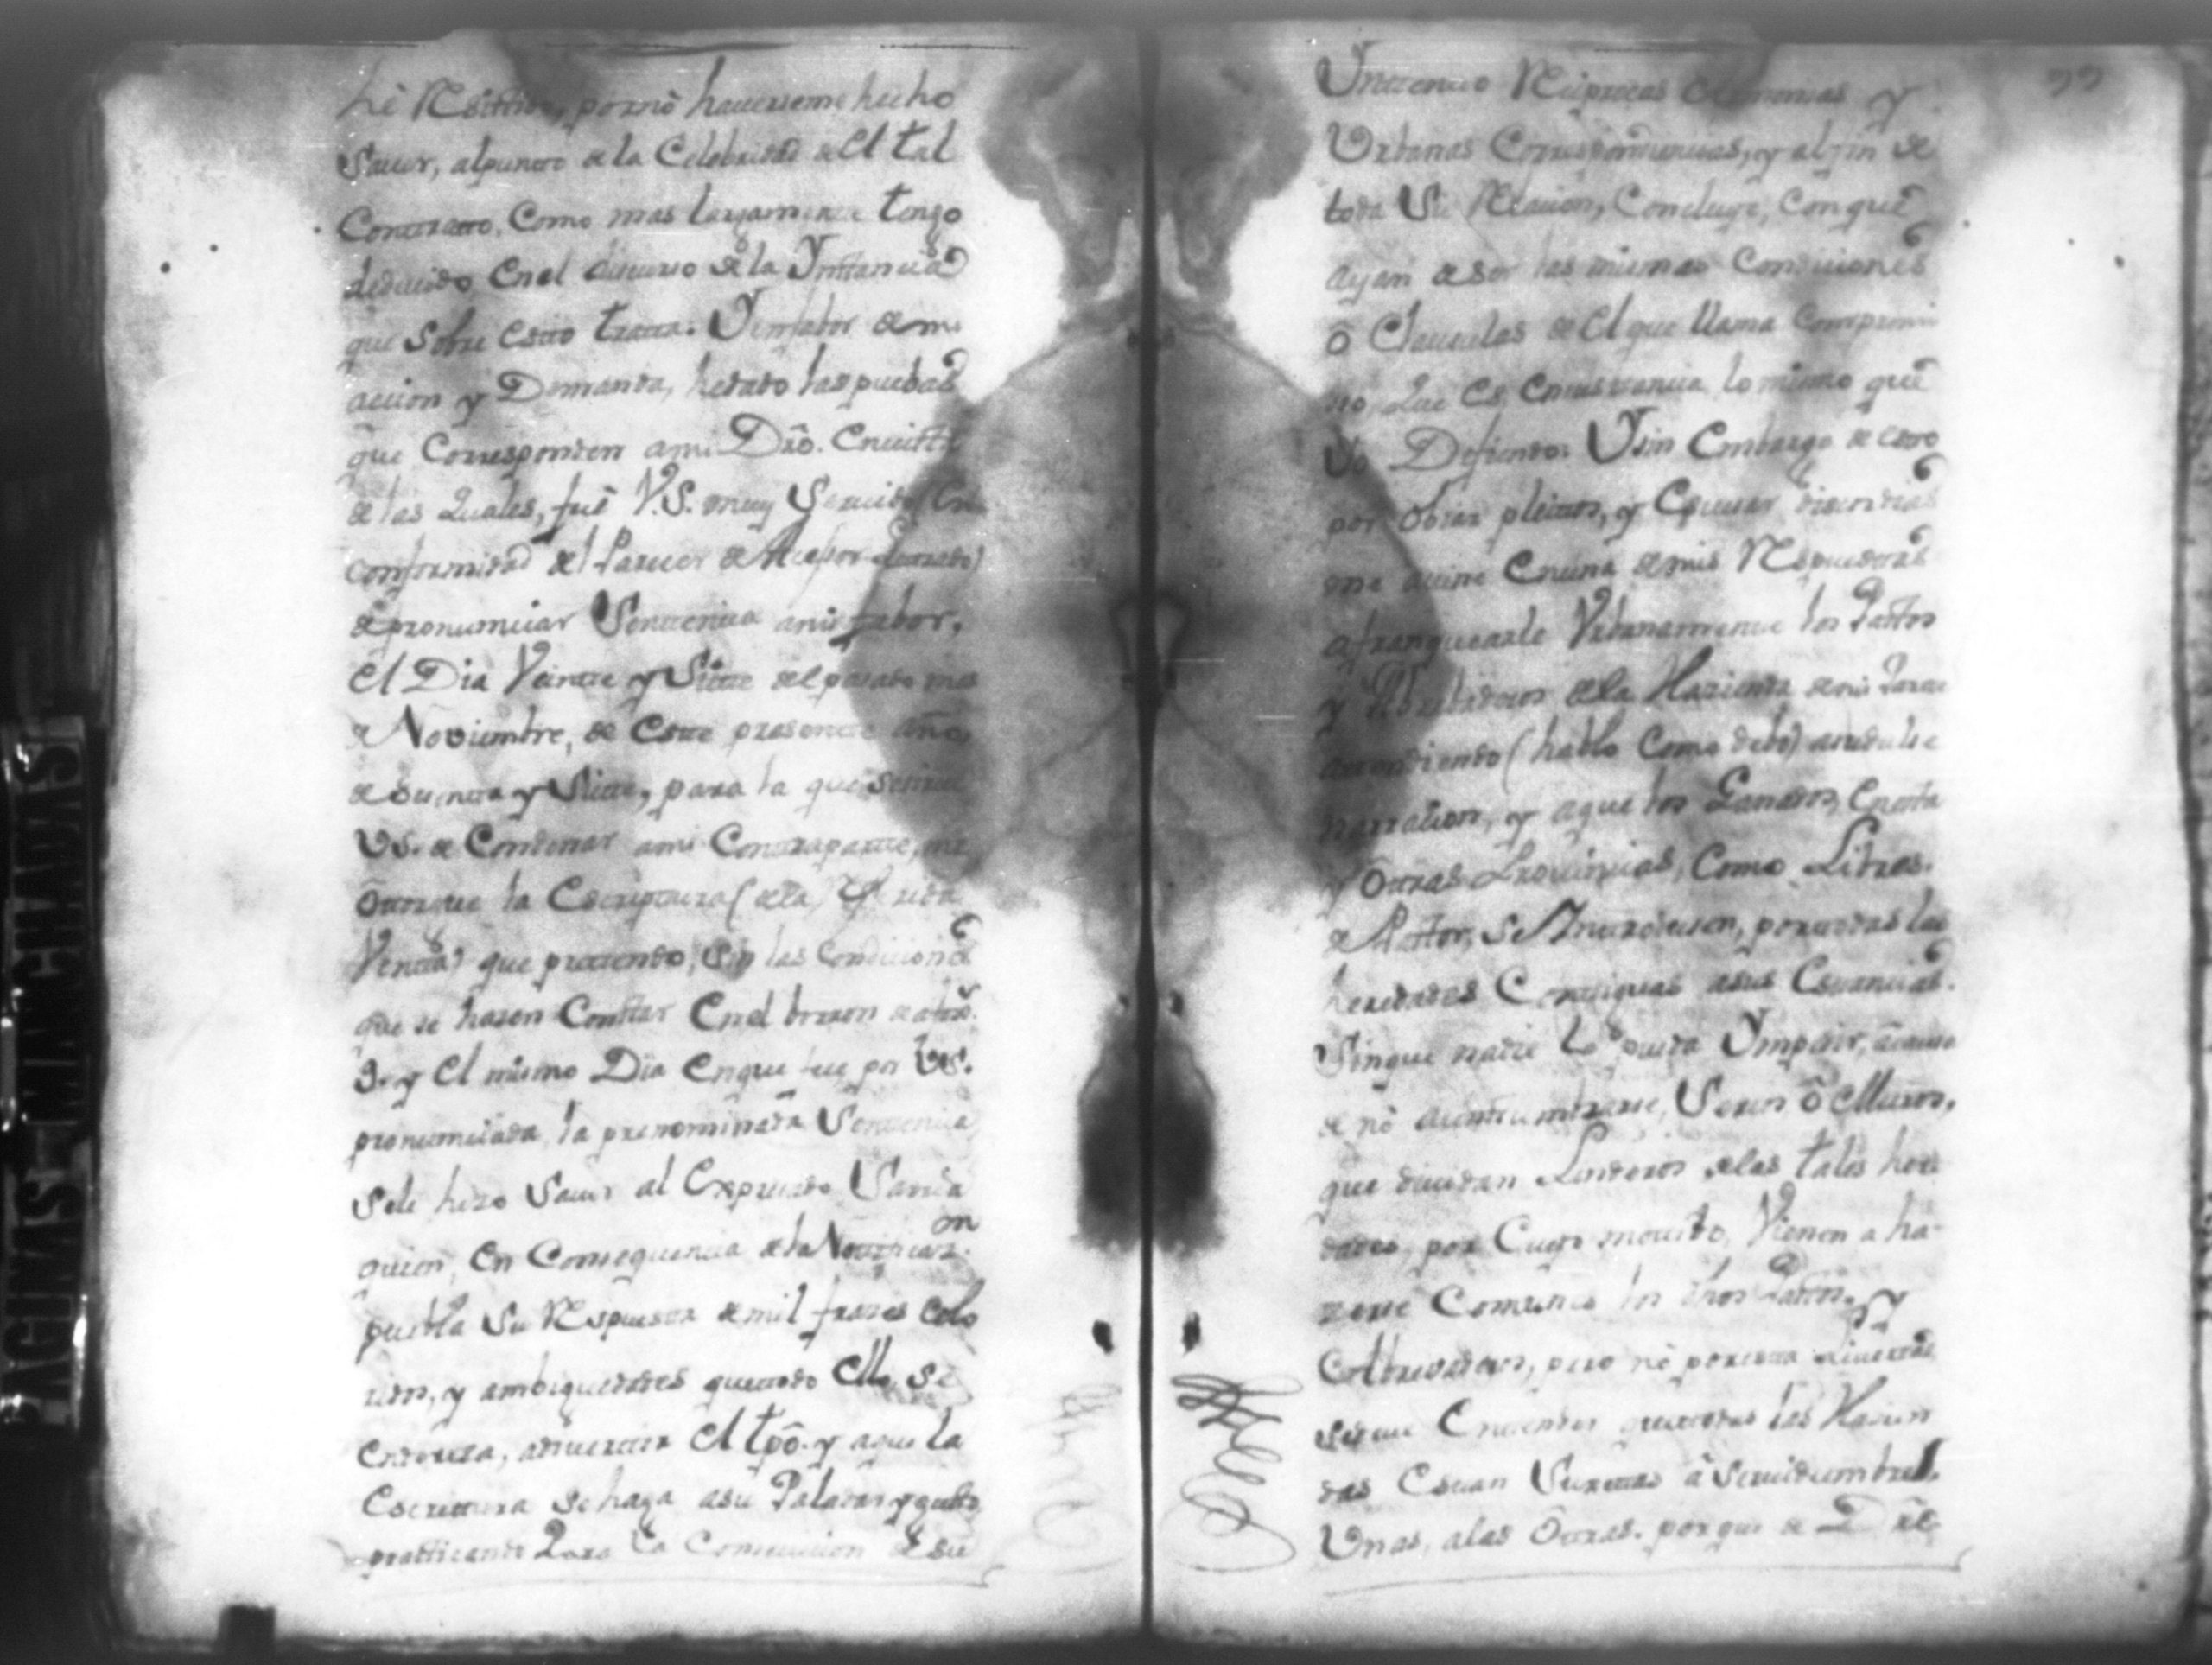 hè Resistido, por nò hauerseme hecho
Sauer, alpunto de la Celebridad de El tal
Contratto, Como mas largamente tengo
deducido En el discurso de la Ynstancia
que Sobre Esto tratta. Yenfabor de mi
accion y Demanda, hedado las pruebas
que Corresponden ami Dro. Envista
de las Quales, fuè V.S. muy Seruido En
conformidad del Parecer de Asessor
de pronunciar Sentencia ami fabor,
El Dia Veinte y Siette del pasado mes
de Noviembre, de Este presente año,
de Settenta y Siette, para la que se sirue
VS. de Condenar ami Contraparte, me
Otorgue la Escriptura (de la
Venta) que pretendo, Sin las Condiciones
que se hasen Constar En el borron de atos.
9. y El mismo Dia Enque fue por VS.
pronunciada, la prenominada Sentencia
sele hizo Sauer al Expresado
quien, En Consequencia de la Notificazon
puebla Su Respuesta de mil frases Colo
ridos, y ambiguedades quetodo Ello se
Endereza, adivertir El tpô. y aque la
Escrittura se haga asu Paladar y gusto
practicando Para la Consecucion de su
Reciprocas Ceremonias y
Urbanas Correspondencias, y al fin de
toda Su Relacion, Concluye, Conque
ayan de ser las mismas Condiciones
ô Clausulas de El que llama Compromi
so, Que Es Ensustancia lo mismo que
Yo Defiendo: Ysin Embargo de esto
por Obiar pleitos, y Escusar discordias
me auine Enuna de mis Respuestas
afranquearle Vrbanamente los Pastos
y Abrebaderos de la Hazienda de mi Parte
atendiendo (hablo Como debo) asudulse
narracion, y aque los Ganados, Enesta
y Ottras Prouincias, Como Libres
de Pastor, Se Yntroducen, portodas las
heredades Contiguas asus Estancias.
Sinque nadie Lo pueda Ympedir, acausa
de nò acostumbrarse, Sercos ô Muros,
que diuidan Linderos de las tales here
dades, por Cuyo motibo, Vienen a ha-
zerse Comunes los dhos Pastos. y
Abrevaderos, pero nò poresta
sedeue Entender quetodas las Hacien
das Estan Sugettas â Seruidumbres.
Unas, alas Ottras. porque de